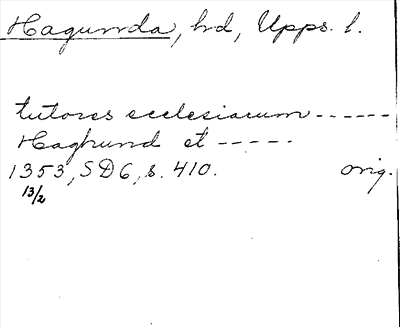 Hagunda, hd, Upps. l.
tutores ecclesiarum ------
Haghund et -----
1353, SD6, s. 410. orig.
13/2